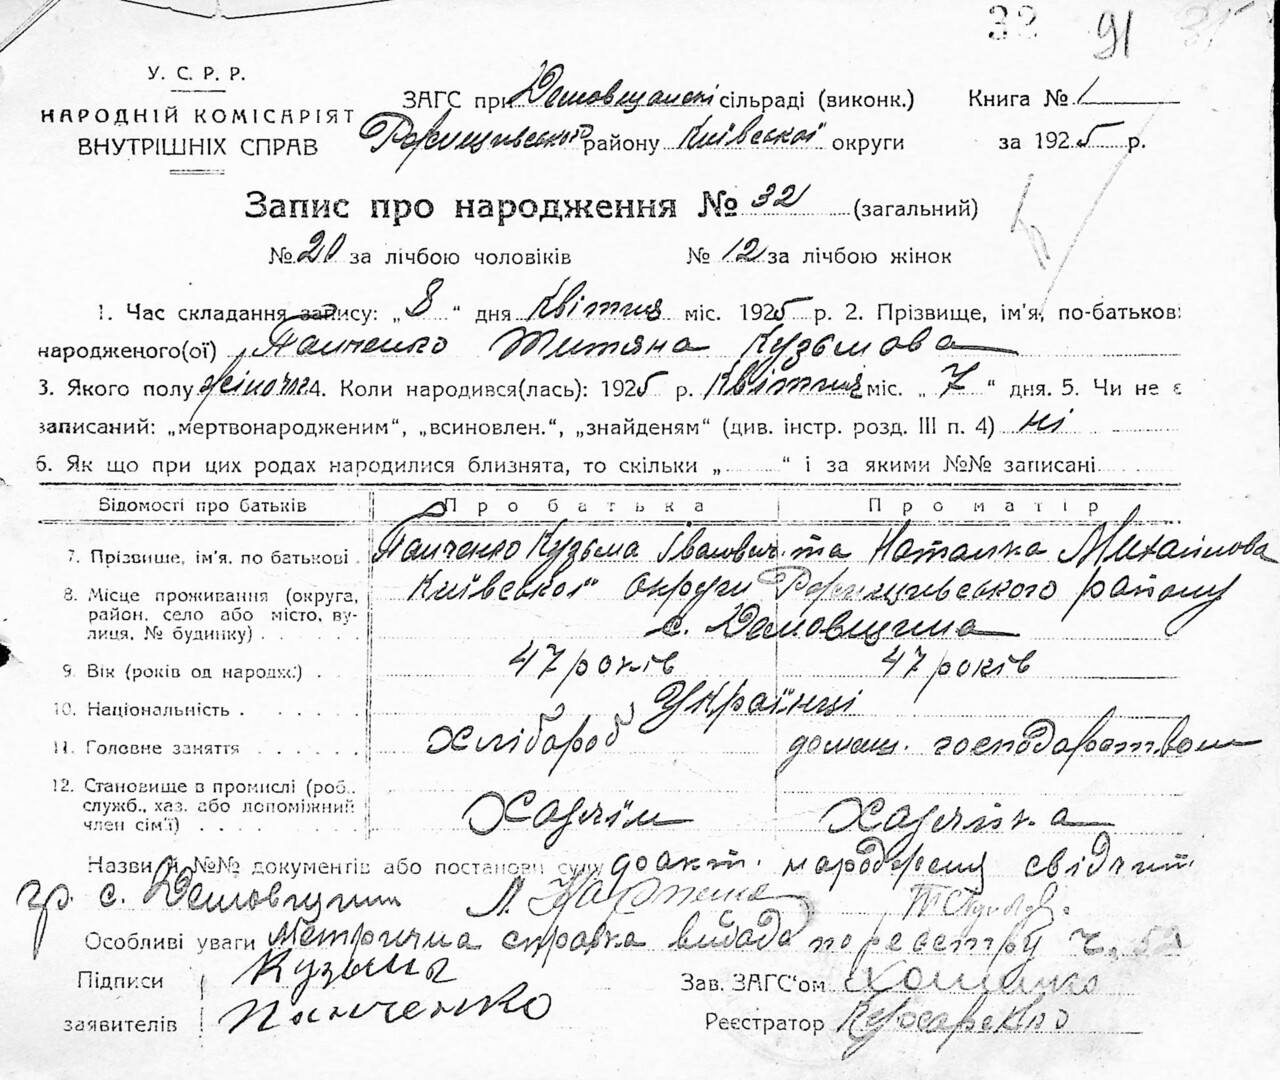 32 91 31
У. С. Р. Р.
НАРОДНІЙ КОМІСАРІЯТ
ВНУТРІШНІХ СПРАВ
ЗАГС при Демовщанскі сільраді (виконк.)
Ржищівської району Київської округи
Книга № 1
за 1925 р.
Запис про народження № 32 (загальний)
№ 20 за лічбою чоловіків № 12 за лічбою жінок
1. Час складання запису: „ 8 “ дня Квітня міс. 1925 р. 2. Прізвище, ім'я, по-батьков:
народженого(ої) Панченко Титяна Кузьмова
3. Якого полу жіночаг 4. Коли народився(лась): 1925 р. Квітня міс. „ 7 “ дня. 5. Чи не є
записаний: „мертвонародженим“, „всиновлен.“, „знайденям“ (див. інстр. розд. III п. 4) ні
6. Як що при цих родах народилися близнята, то скільки „ “ і за якими №№ записані
Відомості про батьків Про батька Про матір
7. Прізвище, ім'я, по батькові Панченко Кузьма Івалович та Наталка Михайлова
8. Місце проживання (округа, район, село або місто, вулиця, № будинку) Київської округи Ржищівського району
с. Демовщина
9. Вік (років од народж.) 47 років 47 років
10. Національність Українці
11. Головне заняття Хлібороб домаш. господарством
12. Становище в промислі (роб., служб., хаз. або допоміжний член сім'ї) Хазяїн Хазяйка
Назви й №№ документів або постанови суду до акт. народження свідчит.
гр. с. Демовщини Л.
Особливі уваги Метрична справка видада по реестру ч. 52
Підписи Кузьма Зав. ЗАГС'ом
заявителів Панченко Реєстратор